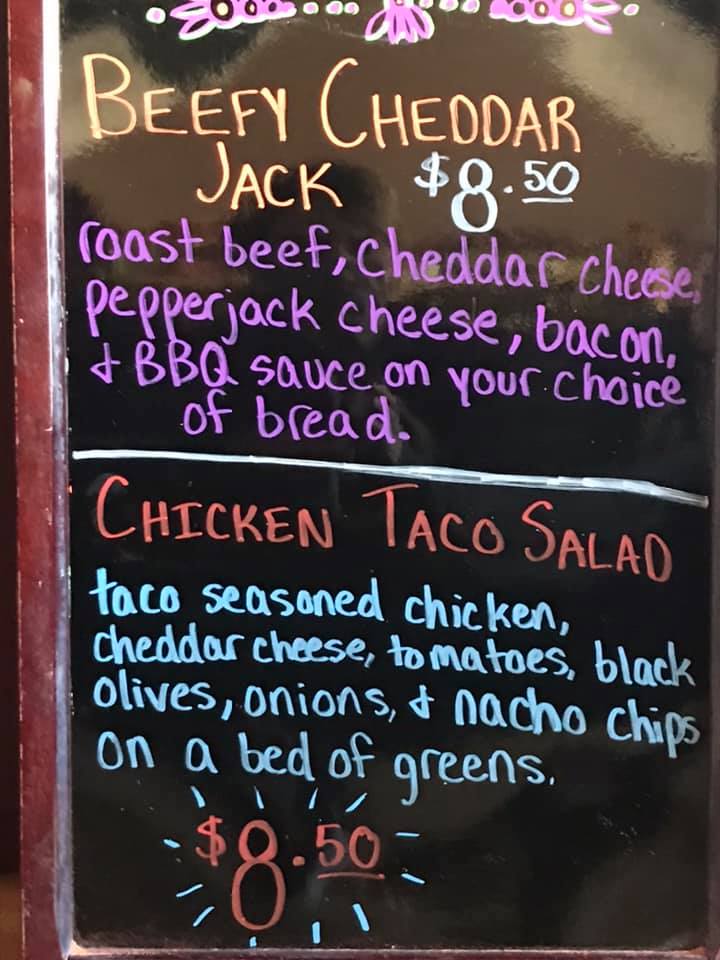 BEEFY CHEDDAR
JACK $8.50
roast beef, cheddar cheese,
pepperjack cheese, bacon,
& BBQ sauce on your choice
of bread.
CHICKEN TACO SALAD
taco seasoned chicken,
cheddar cheese, tomatoes, black
olives, onions, & nacho chips
on a bed of greens.
$8.50